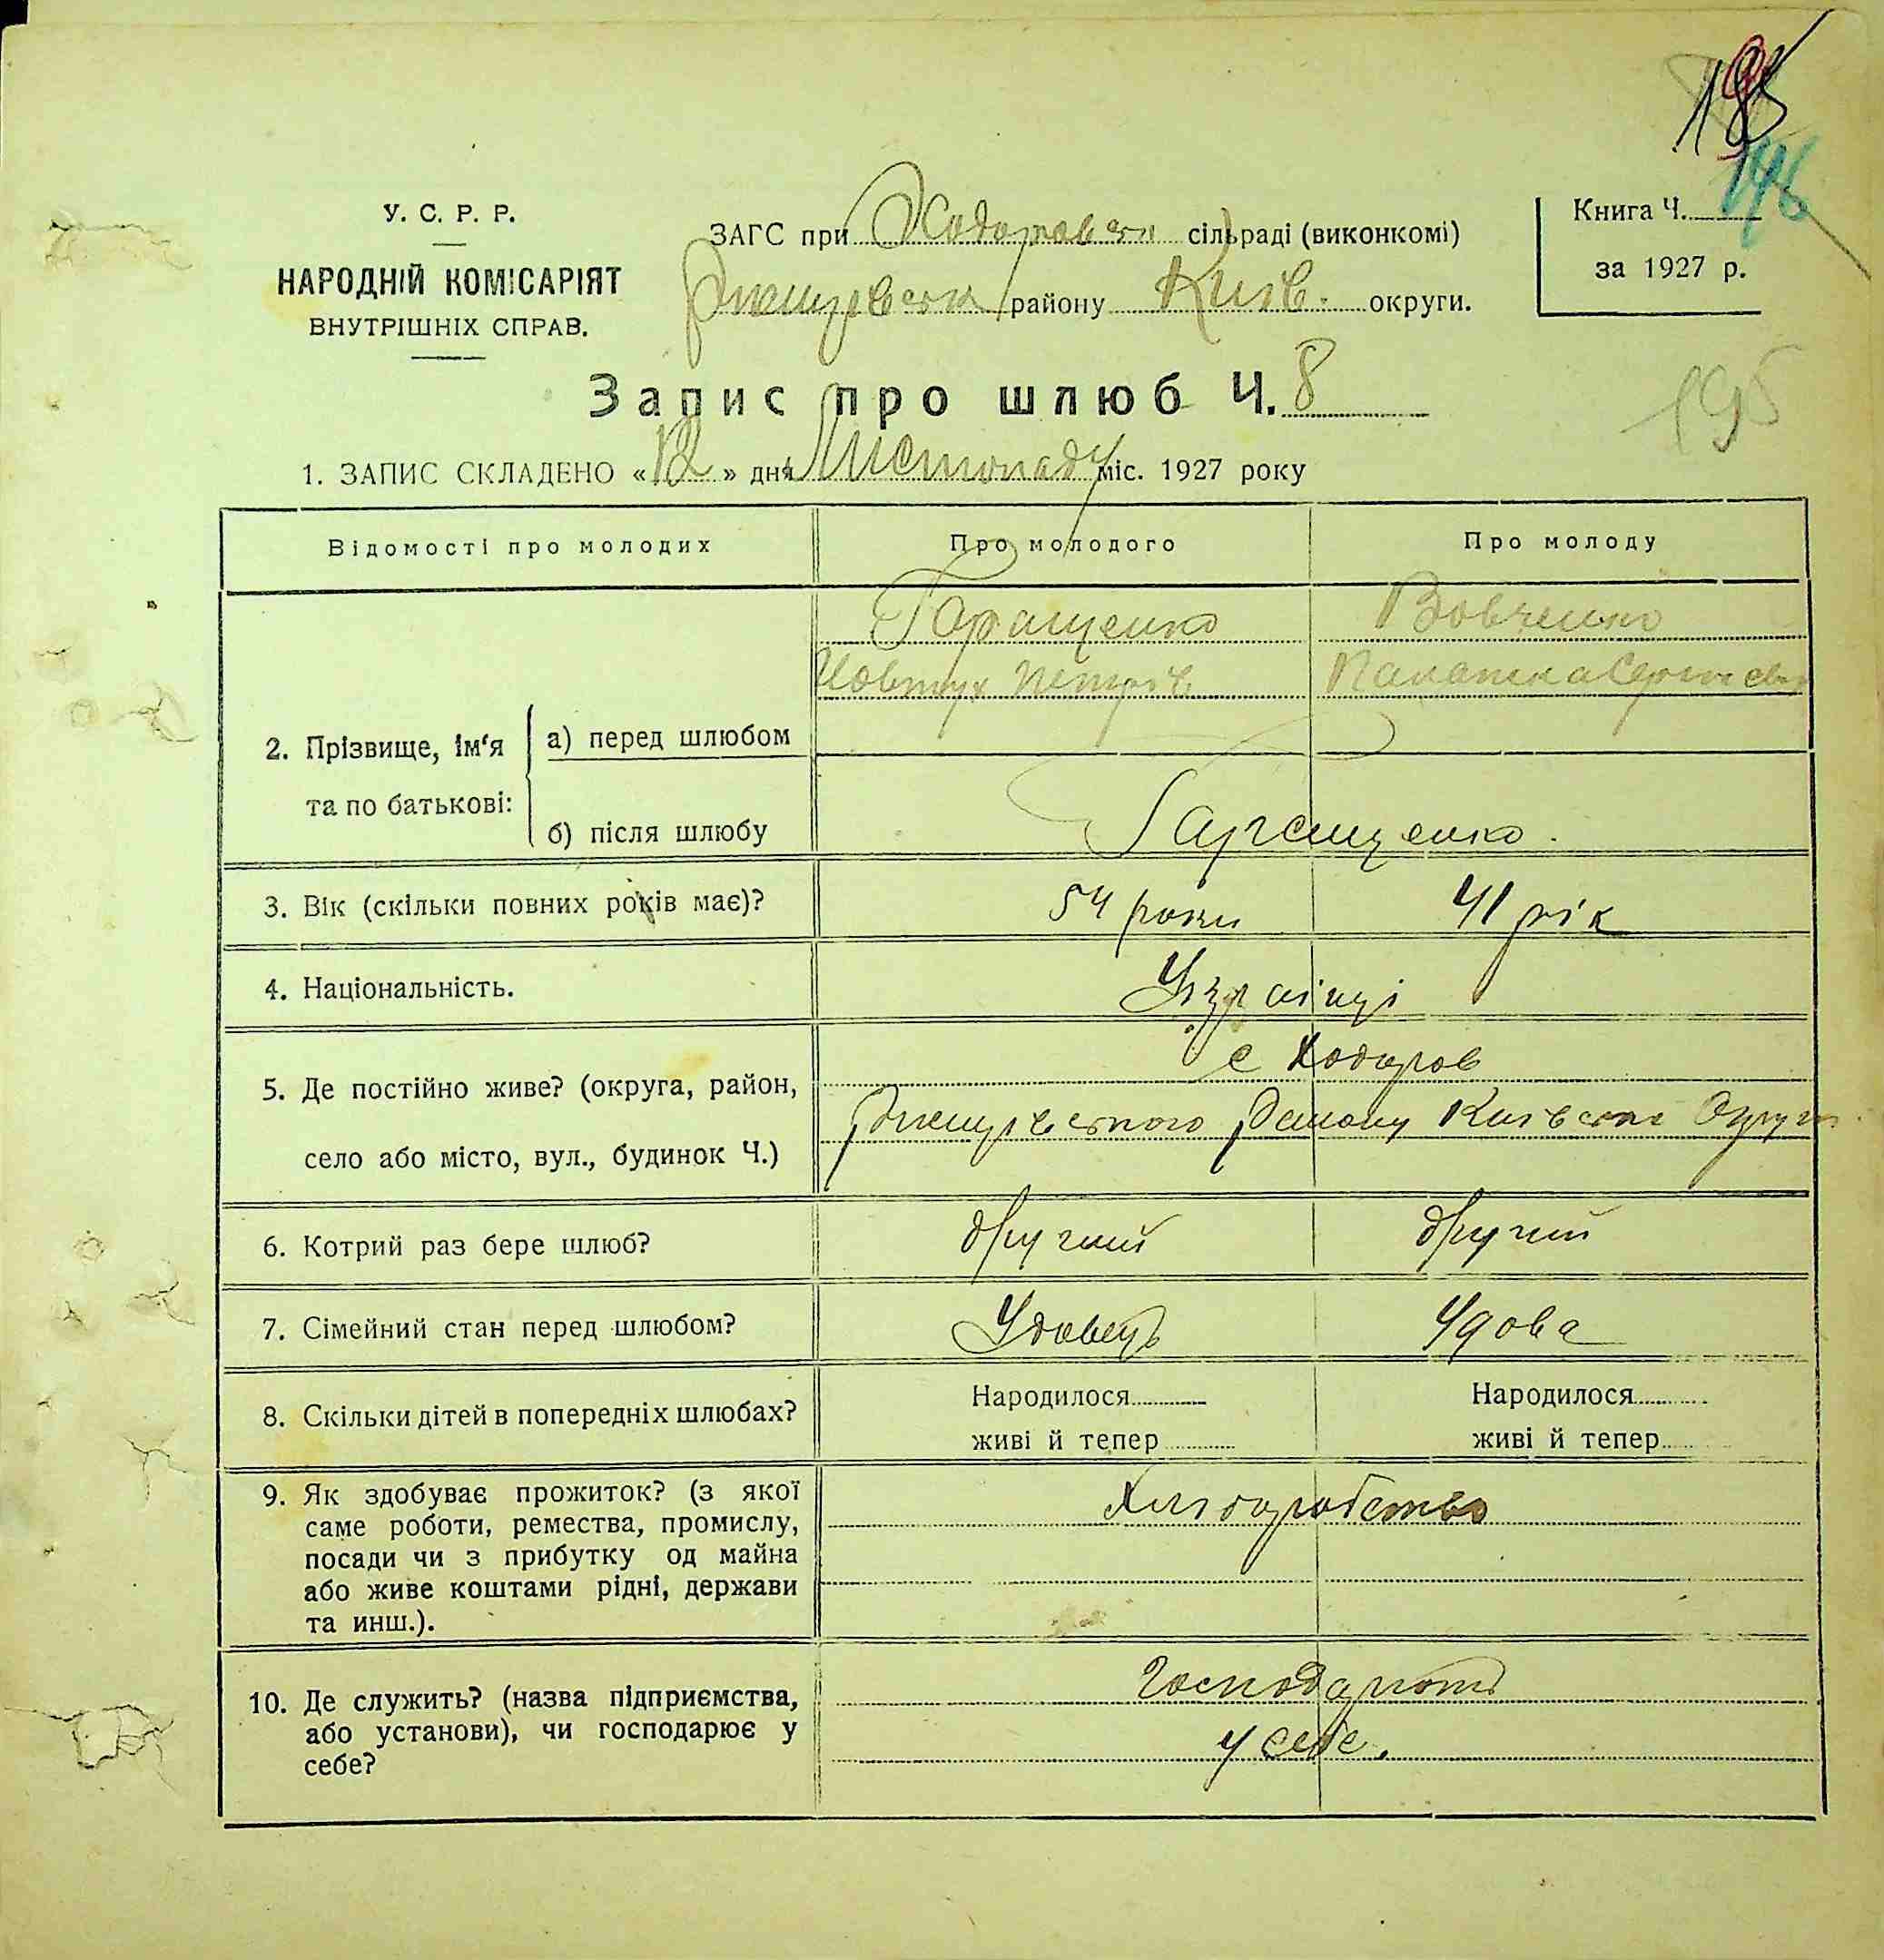 195
146
У. С. Р. Р.
НАРОДНІЙ КОМІСАРІЯТ
ВНУТРІШНІХ СПРАВ.
ЗАГС при Ходоровськ сільраді (виконкомі)
Ржищівськ району Київ. округи.
Книга Ч.
за 1927 р.
Запис про шлюб Ч. 8
195
1. ЗАПИС СКЛАДЕНО «12» дня Листопаду міс. 1927 року
Відомості про молодих Про молодого Про молоду
2. Прізвище, ім'я та по батькові:
а) перед шлюбом
Гаращенко Вовченко
Петрів
б) після шлюбу
Гаращенко.
3. Вік (скільки повних років має)? 54 роки 41 рік
4. Національність. Українці
5. Де постійно живе? (округа, район,
село або місто, вул., будинок Ч.)
с Ходоров
Ржищівського Району Київськ Округи
6. Котрий раз бере шлюб? другий другий
7. Сімейний стан перед шлюбом? Удовець Удова
8. Скільки дітей в попередніх шлюбах?
Народилося Народилося
живі й тепер живі й тепер
9. Як здобуває прожиток? (з якої
саме роботи, ремества, промислу,
посади чи з прибутку од майна
або живе коштами рідні, держави
та инш.).
Хліборобство
10. Де служить? (назва підприємства,
або установи), чи господарює у
себе?
Господарюють
у себе.